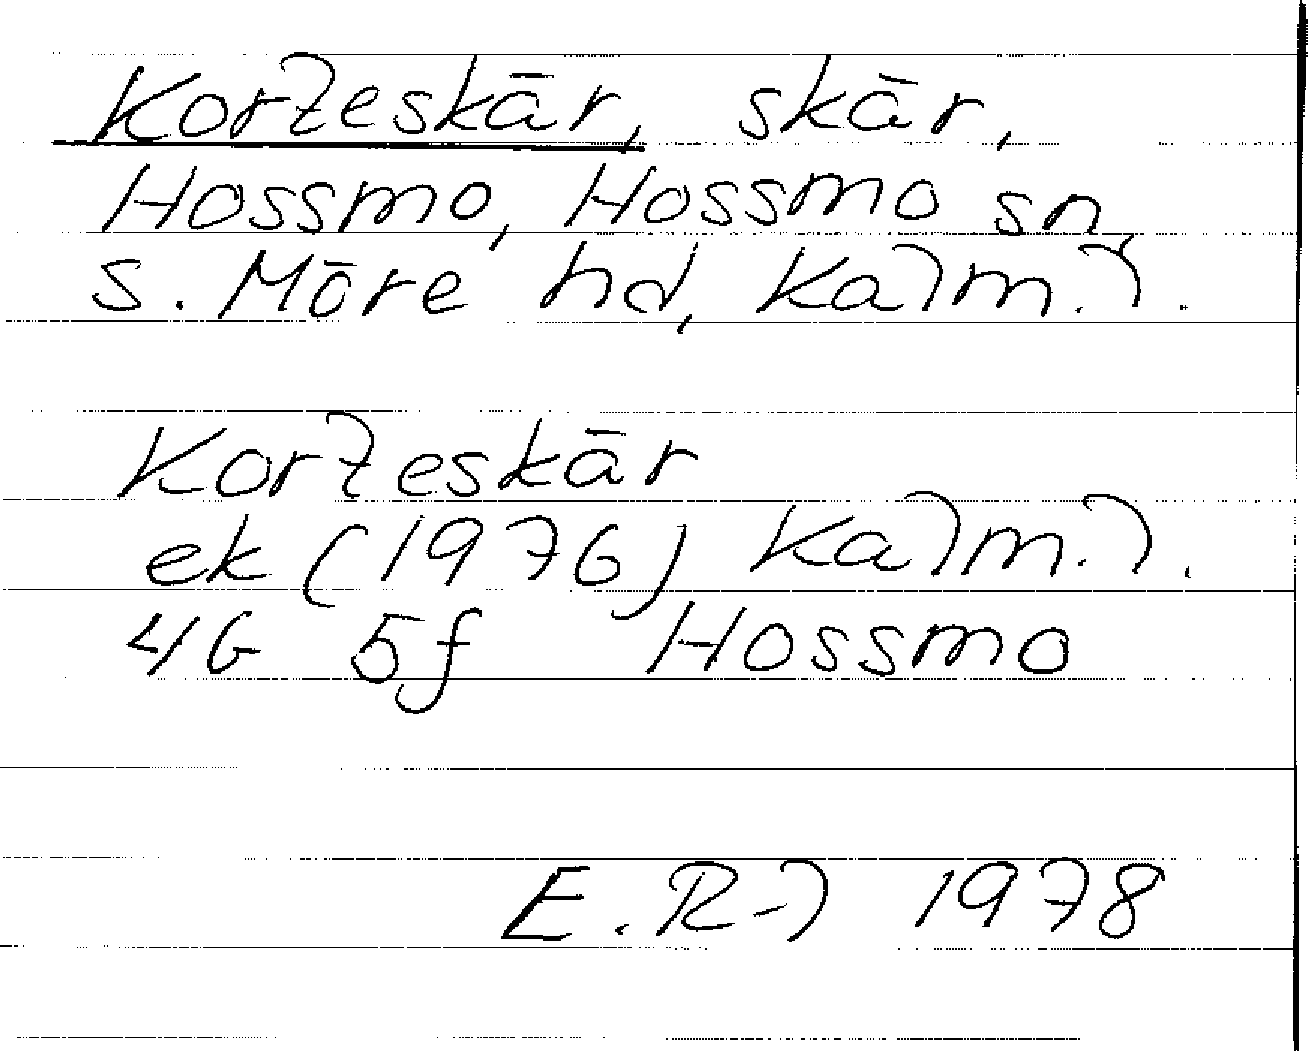 Korteskär, skär,
Hossmo, Hossmo sn,
S. Möre hd, Kalm. l.
Korteskär
ek (1976) Kalm. l.
4G 5f Hossmo
E. R-l 1978